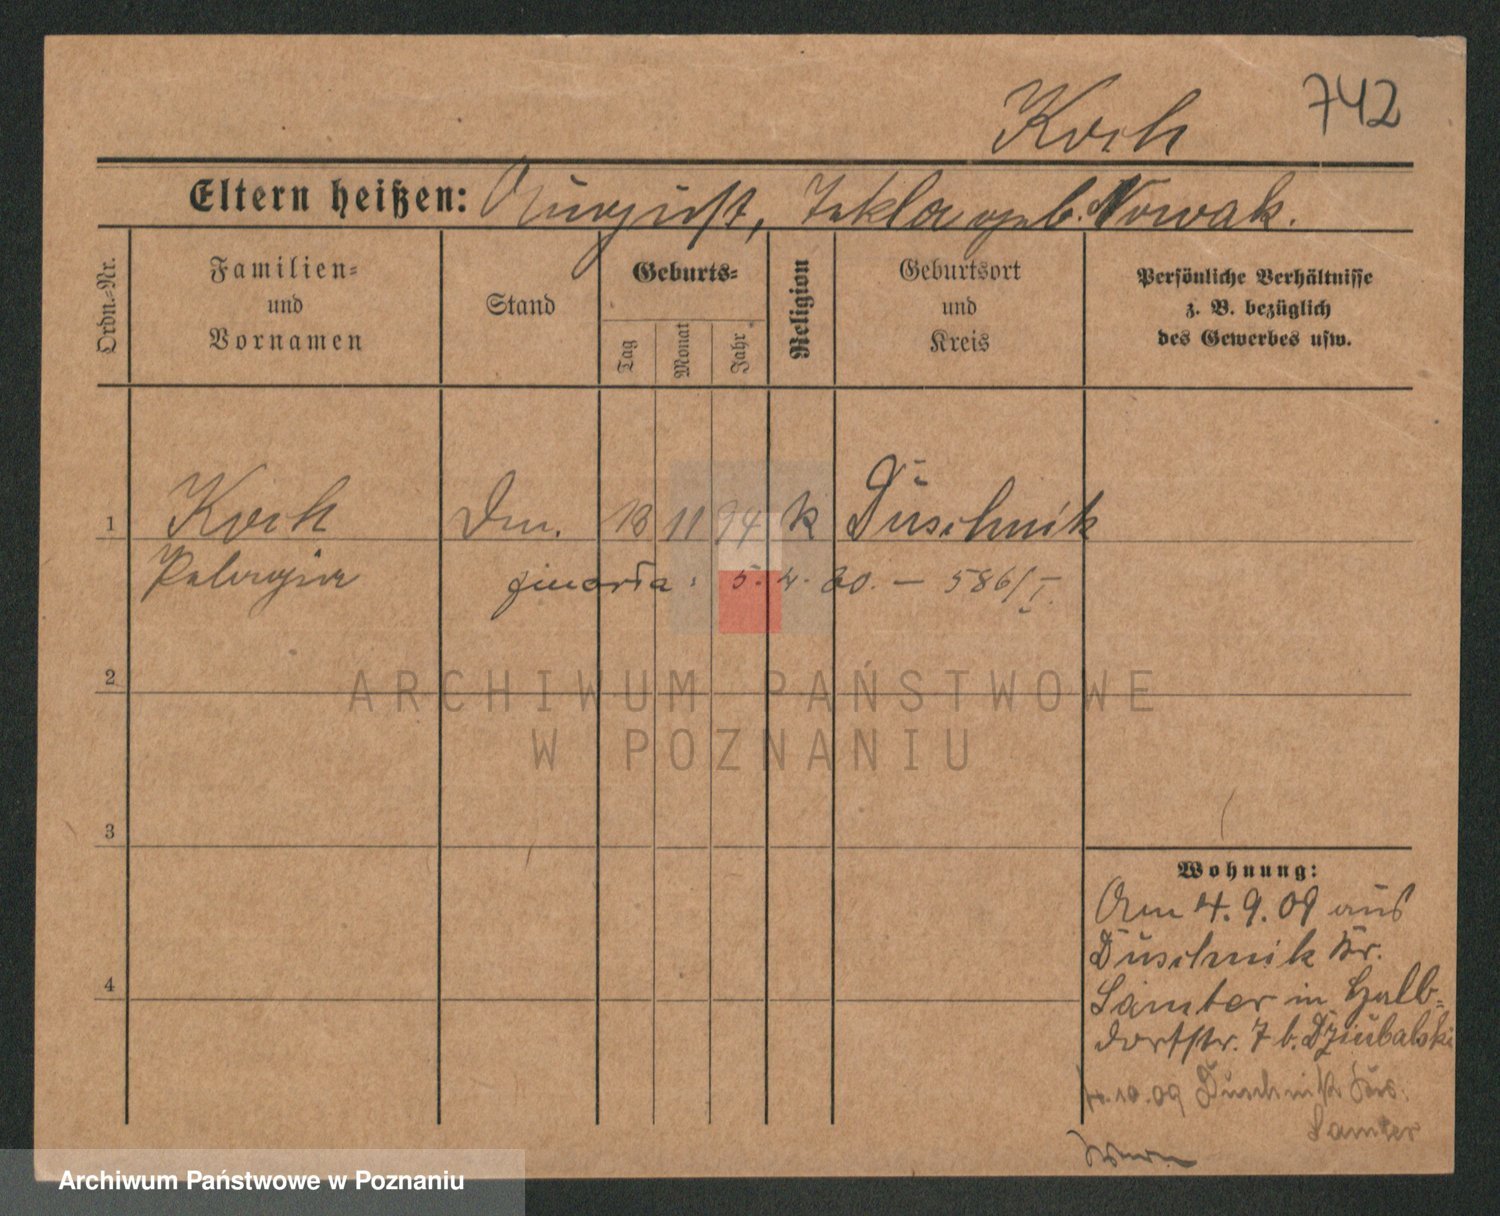 Koch
742
Eltern heißen: August, Tekla geb. Nowak.
Ordn.-Nr.
Familien-
und
Vornamen
Stand
Geburts-
Tag
Monat
Jahr
Religion
Geburtsort
und
Kreis
Persönliche Verhältnisse
z. B. bezüglich
des Gewerbes usw.
1 Koch Dm. 18 11 94 k Duschnik
Pelagia zmarła: 5. 4. 60. — 586/I.
2
ARCHIWUM PAŃSTWOWE
W POZNANIU
3
Wohnung:
Am 4.9.09 aus
Duschnik Kr.
4
Samter in Halb-
dorfstr. 7 b. Dziubalski
10.09 Duschnik Krs.
Samter
Archiwum Państwowe w Poznaniu